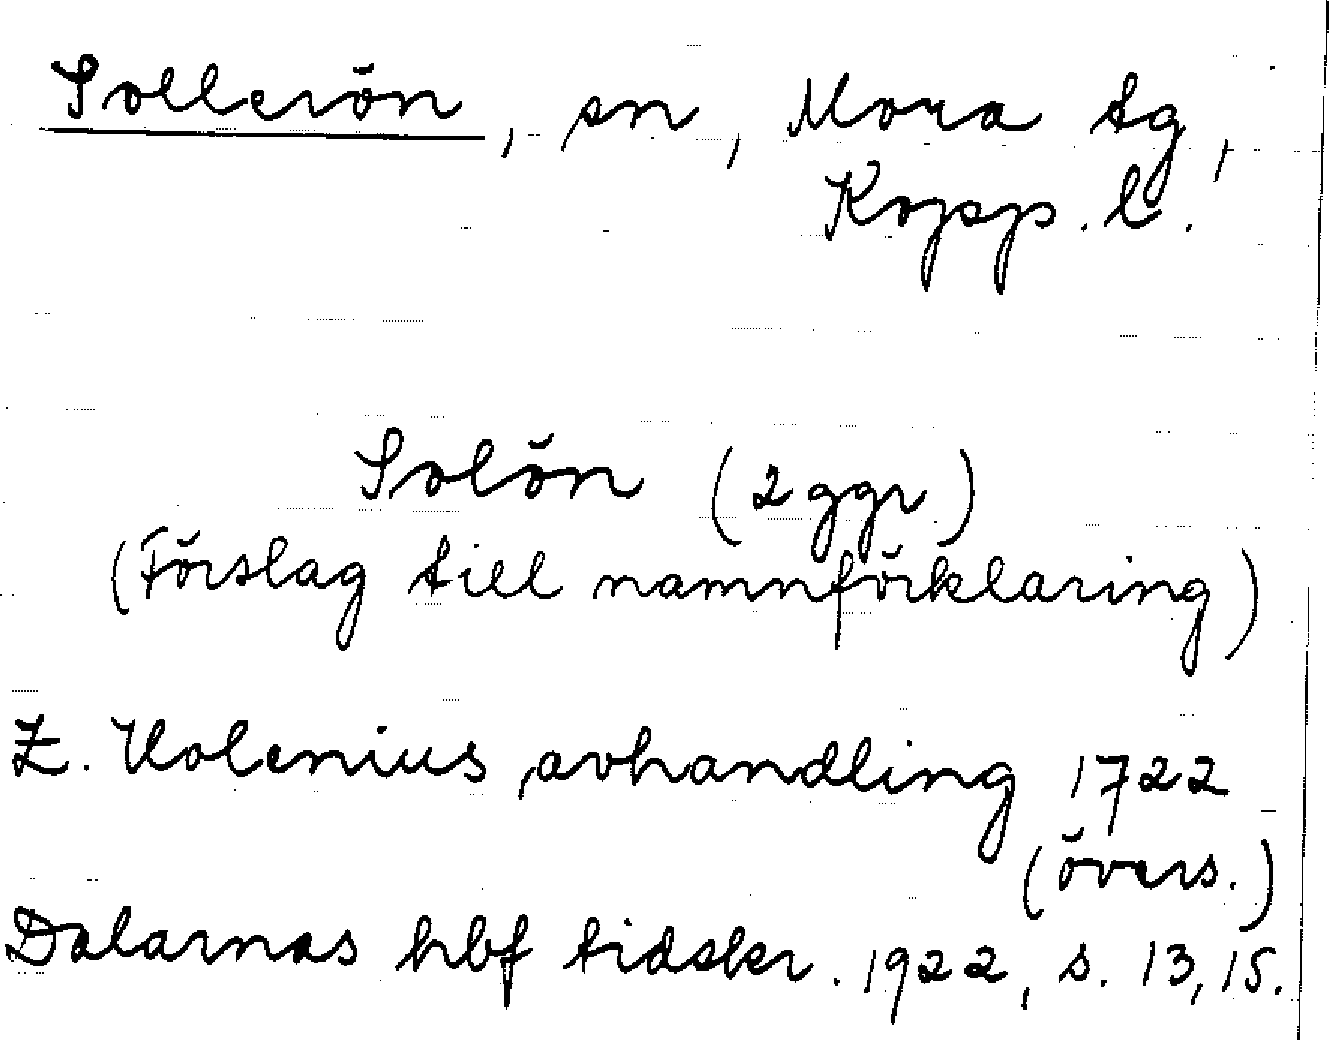 Sollerön, sn, Mora tg,
Kopp. l.
Solön (2 ggr)
(Förslag till namnförklaring)
Z. Holenius, avhandling 1722
(övers.)
Dalarnas hbf tidskr. 1922, s. 13, 15.